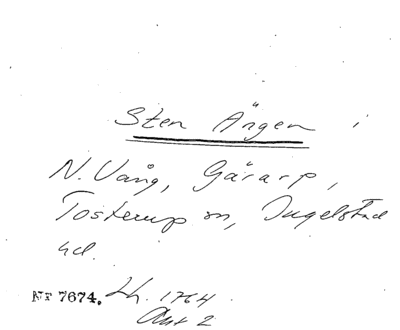 Sten Ängen i
N. Vång, Gärarp,
Tosterup sn, Ingelstad
hd.
Nr 7674. Lh. 1764
Akt 2